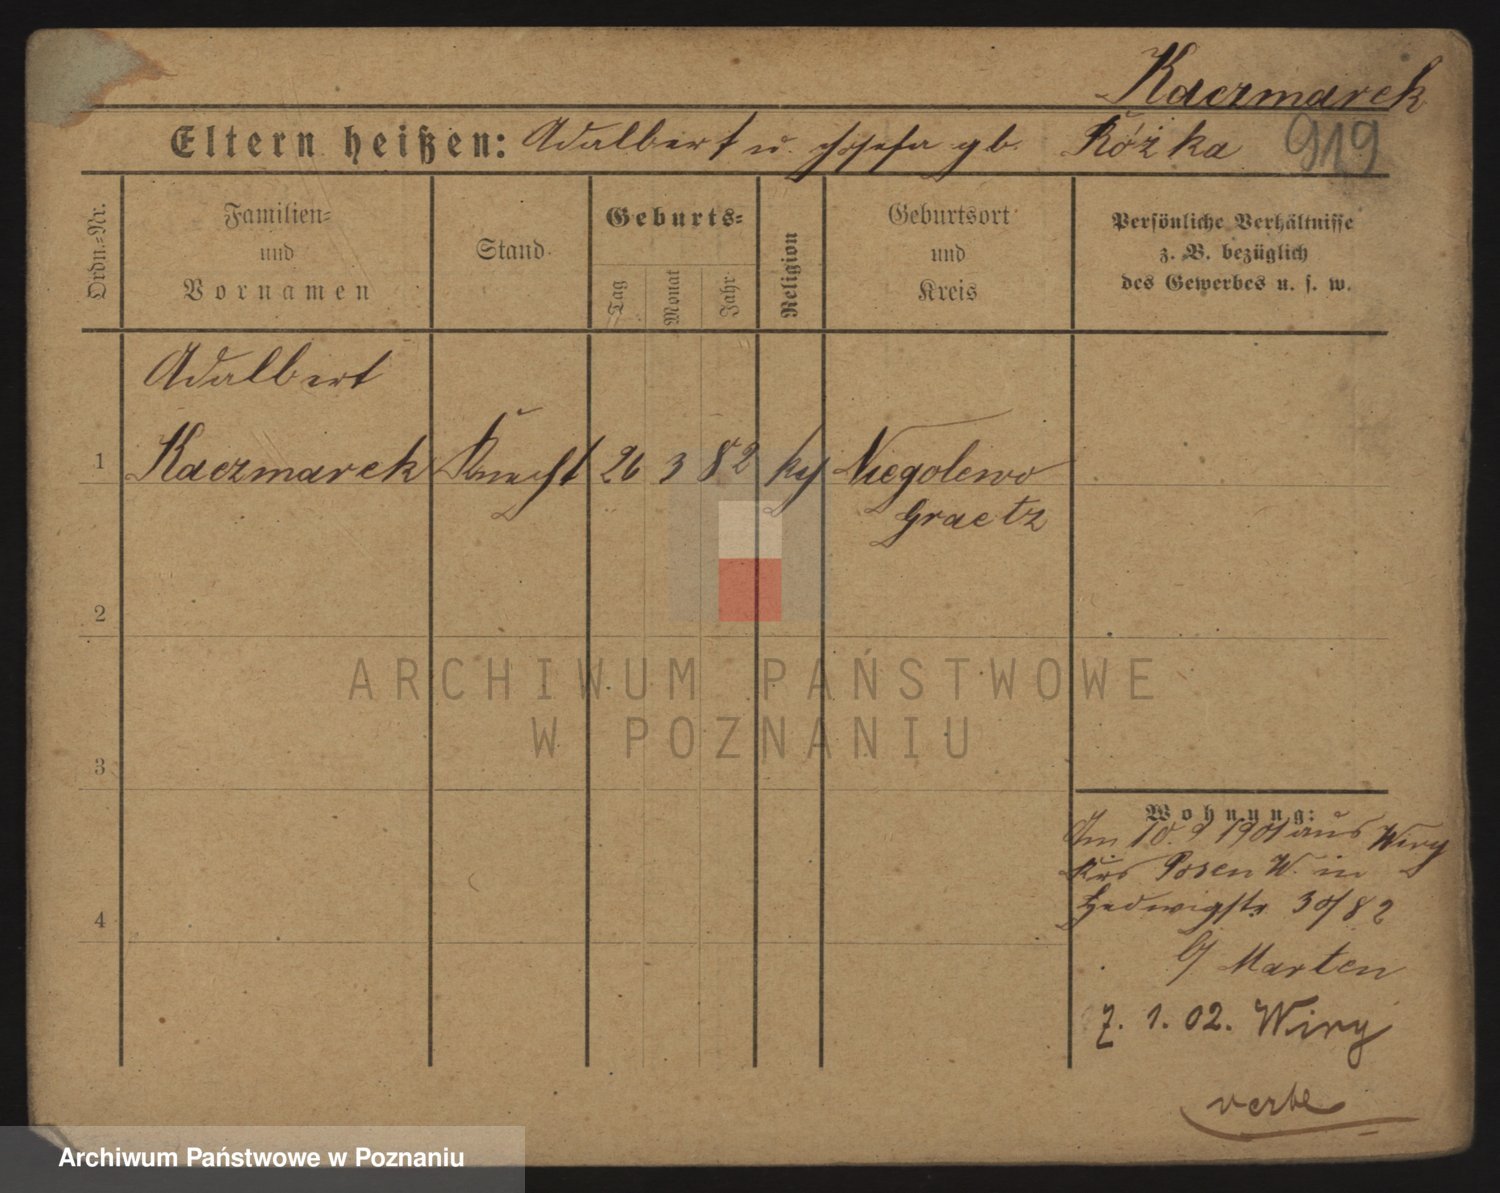 Kaczmarek
Eltern heißen: Adalbert u. Josefa gb. Różka 919
Ordn.-Nr.
Familien-
und
Vornamen
Stand
Geburts-
Tag
Monat
Jahr
Religion
Geburtsort
und
Kreis
Persönliche Verhältnisse
z. B. bezüglich
des Gewerbes u. s. w.
Adalbert
1 Kaczmarek Knecht 26 3 82 Niegolewo
Graetz
2
3
4
Wohnung:
Am 10. 9 1901 aus Wiry
Krs Posen W. in
Hedwigstr 30/82
b/ Marten
7. 1. 02. Wiry
ARCHIWUM PAŃSTWOWE
W POZNANIU
Archiwum Państwowe w Poznaniu